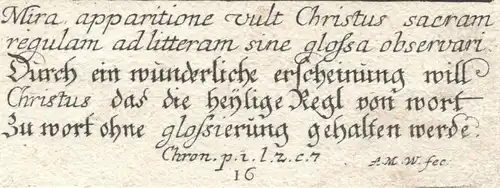 Mira apparitione vult Christus sacram
regulam ad litteram sine glossa observari.
Durch ein wunderliche erscheinung will
Christus das die heÿlige Regl von wort
Zu wort ohne glossierung gehalten werde.
Chron. p. 1. l. 2. c. 7
A. M. W. fec.
16